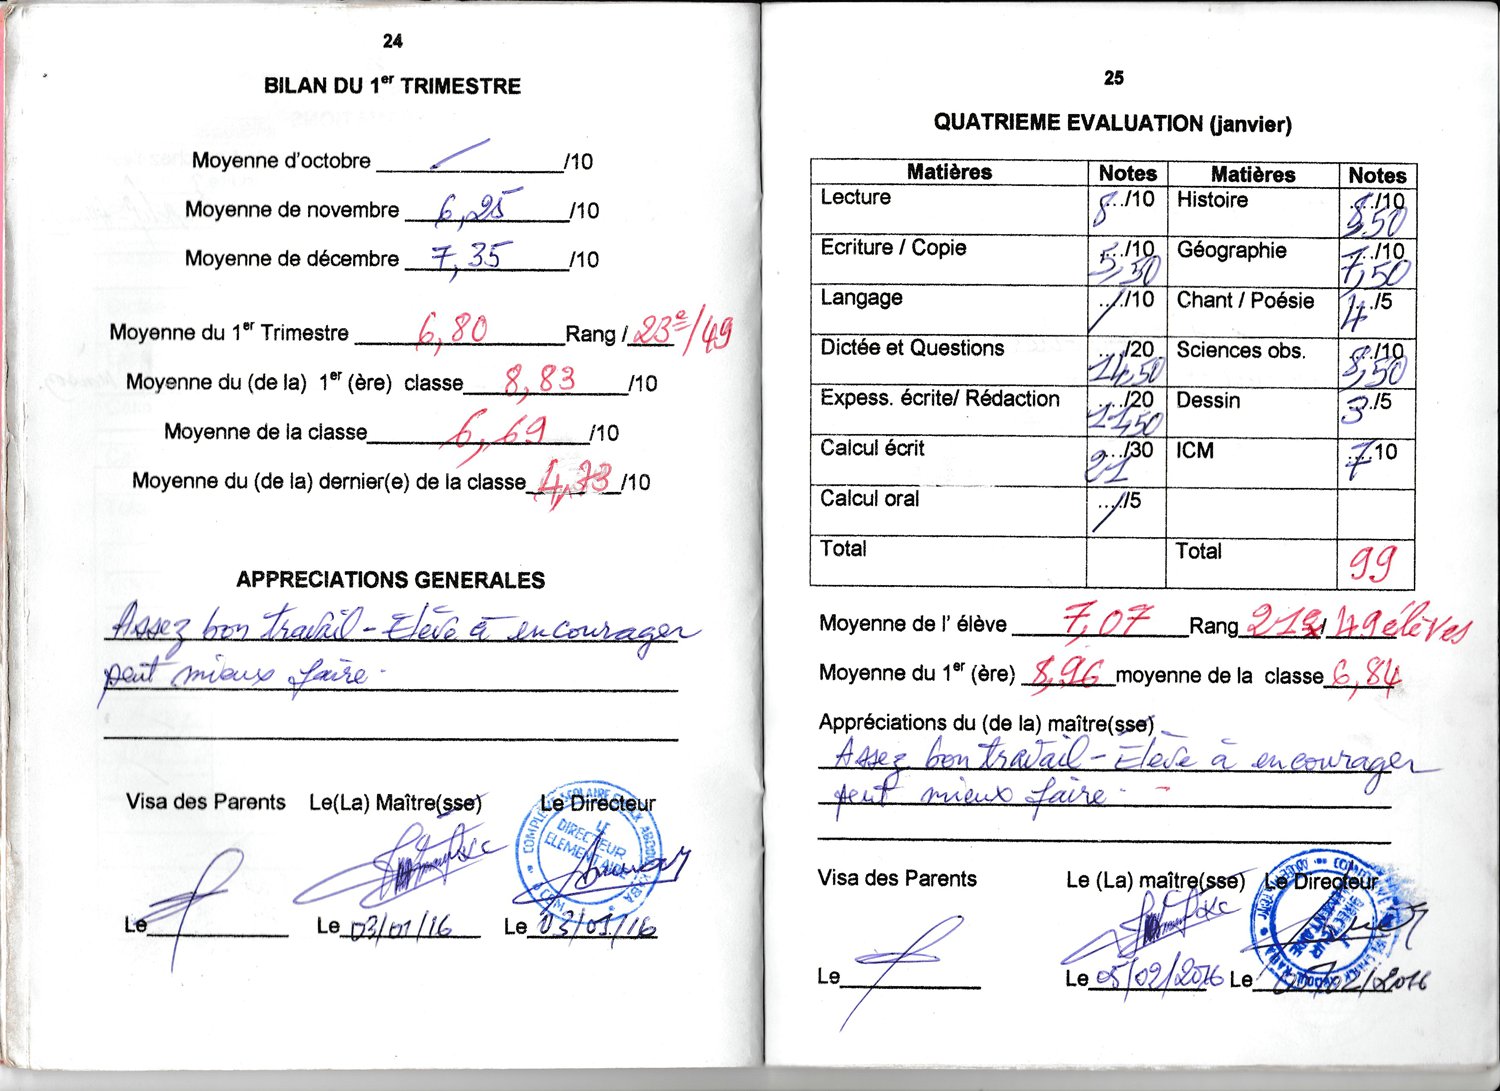 24
BILAN DU 1er TRIMESTRE
Moyenne d'octobre /10
Moyenne de novembre 6,25 /10
Moyenne de décembre 7,35 /10
Moyenne du 1er Trimestre 6,80 Rang / 23e/49
Moyenne du (de la) 1er (ère) classe 8,83 /10
Moyenne de la classe 6,69 /10
Moyenne du (de la) dernier(e) de la classe 4,73 /10
APPRECIATIONS GENERALES
Assez bon travail - Elève à encourager
peut mieux faire.
Visa des Parents Le(La) Maître(sse) Le Directeur
LE DIRECTEUR ELEMENTAIRE
Le Le 03/01/16 Le 03/01/16
25
QUATRIEME EVALUATION (janvier)
Matières Notes Matières Notes
Lecture 8 .../10 Histoire 8,50 .../10
Ecriture / Copie 5,50 .../10 Géographie 7,50 .../10
Langage / .../10 Chant / Poésie 4 /5
Dictée et Questions 14,50 .../20 Sciences obs. 8,50 .../10
Expess. écrite/ Rédaction 11,50 .../20 Dessin 3 /5
Calcul écrit 21 .../30 ICM 7 10
Calcul oral / .../5
Total Total 99
Moyenne de l' élève 7,07 Rang 21e / 49 élèves
Moyenne du 1er (ère) 8,96 moyenne de la classe 6,84
Appréciations du (de la) maître(sse)
Assez bon travail - Elève à encourager
peut mieux faire.
Visa des Parents Le (La) maître(sse) Le Directeur
Le Le 05/02/2016 Le /02/2016